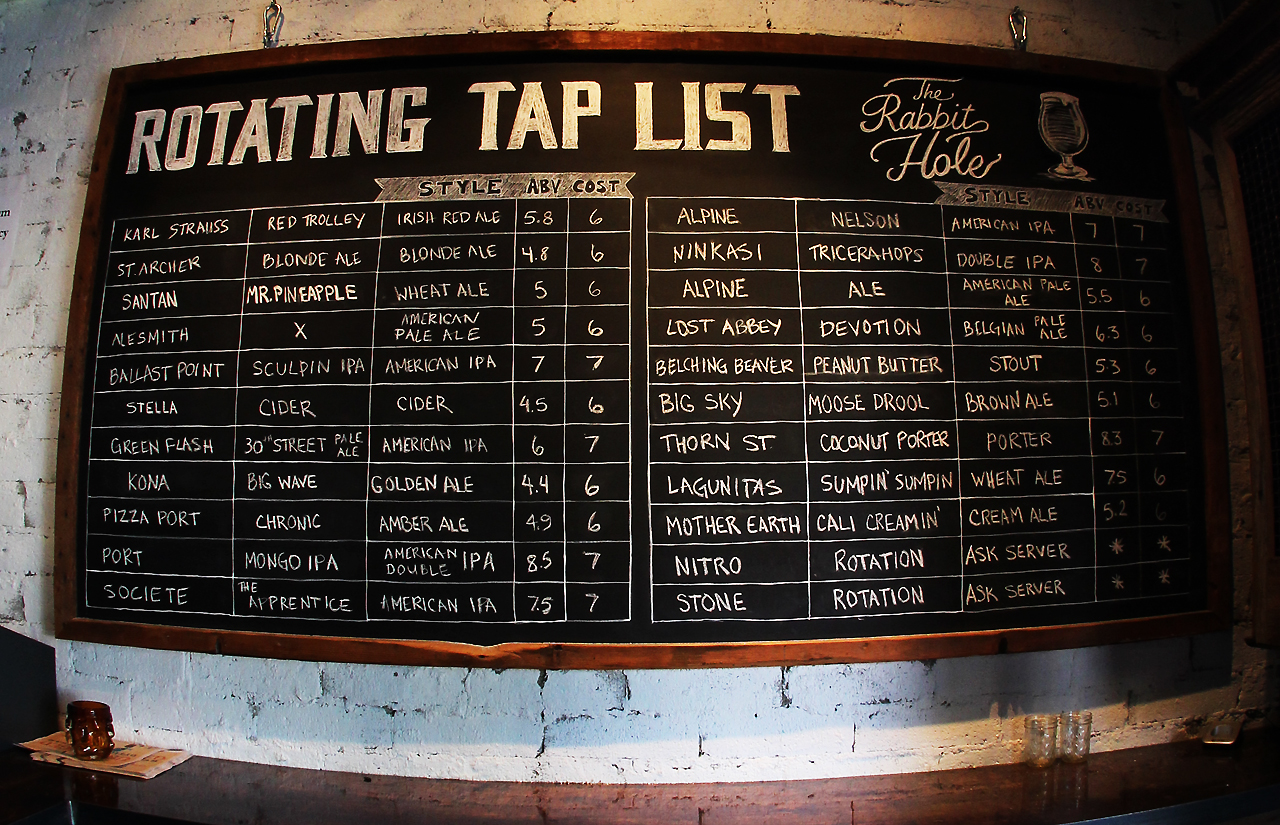 ROTATING TAP LIST
The
Rabbit
Hole
STYLE ABV COST
KARL STRAUSS RED TROLLEY IRISH RED ALE 5.8 6
ST. ARCHER BLONDE ALE BLONDE ALE 4.8 6
SANTAN MR. PINEAPPLE WHEAT ALE 5 6
ALESMITH X AMERICAN PALE ALE 5 6
BALLAST POINT SCULPIN IPA AMERICAN IPA 7 7
STELLA CIDER CIDER 4.5 6
GREEN FLASH 30TH STREET PALE ALE AMERICAN IPA 6 7
KONA BIG WAVE GOLDEN ALE 4.4 6
PIZZA PORT CHRONIC AMBER ALE 4.9 6
PORT MONGO IPA AMERICAN DOUBLE IPA 8.5 7
SOCIETE THE APPRENTICE AMERICAN IPA 7.5 7
STYLE ABV COST
ALPINE NELSON AMERICAN IPA 7 7
NINKASI TRICERAHOPS DOUBLE IPA 8 7
ALPINE ALE AMERICAN PALE ALE 5.5 6
LOST ABBEY DEVOTION BELGIAN PALE ALE 6.3 6
BELCHING BEAVER PEANUT BUTTER STOUT 5.3 6
BIG SKY MOOSE DROOL BROWN ALE 5.1 6
THORN ST. COCONUT PORTER PORTER 8.3 7
LAGUNITAS SUMPIN' SUMPIN WHEAT ALE 7.5 6
MOTHER EARTH CALI CREAMIN' CREAM ALE 5.2 6
NITRO ROTATION ASK SERVER * *
STONE ROTATION ASK SERVER * *